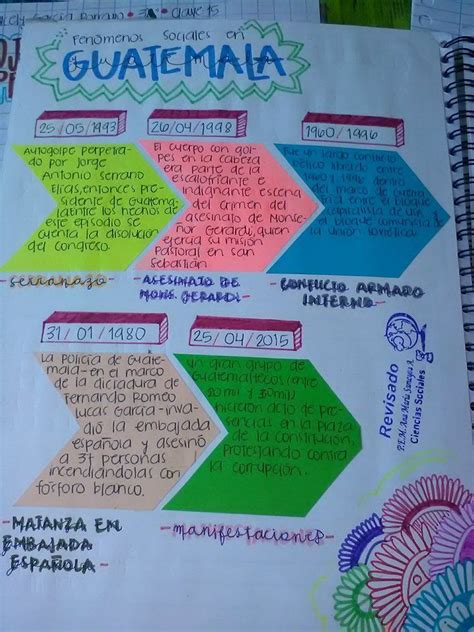 García
clave 15
Fenómenos Sociales en
GUATEMALA
25/05/1993
Autogolpe perpetra-
do por Jorge
Antonio Serrano
Elías, entonces pre-
sidente de Guatema-
la entre los hechos de
este episodio se
cuenta la disolución
del congreso.
- serranazo -
26/04/1998
El cuerpo con gol-
pes en la cabeza
era parte de la
escalofriante e
indignante escena
del crimen del
asesinato de Monse-
ñor Gerardi, quien
ejercía su misión
Pastoral en San
Sebastián.
- ASESINATO DE
MONS. GERARDI -
1960/1996
Fue un largo conflicto
bélico librado entre
1960 y 1996 dentro
del marco de guerra
fría entre el bloque
capitalista de
el bloque comunista de
la unión soviética.
- CONFLICTO ARMADO
INTERNO -
31/01/1980
La Policía de Guate-
mala - en el marco
de la dictadura de
Fernando Romeo
Lucas García - inva-
dió la embajada
española y asesinó
a 37 personas
incendiándolas con
fósforo blanco.
- MATANZA EN
EMBAJADA
ESPAÑOLA -
25/04/2015
Un gran grupo de
Guatemaltecos (entre
20 mil y 30 mil)
hicieron acto de pre-
sencias en la plaza
de la constitución,
Protestando contra
la corrupción.
- manifestaciones -
Revisado
P.E.M. Ana María
Ciencias Sociales